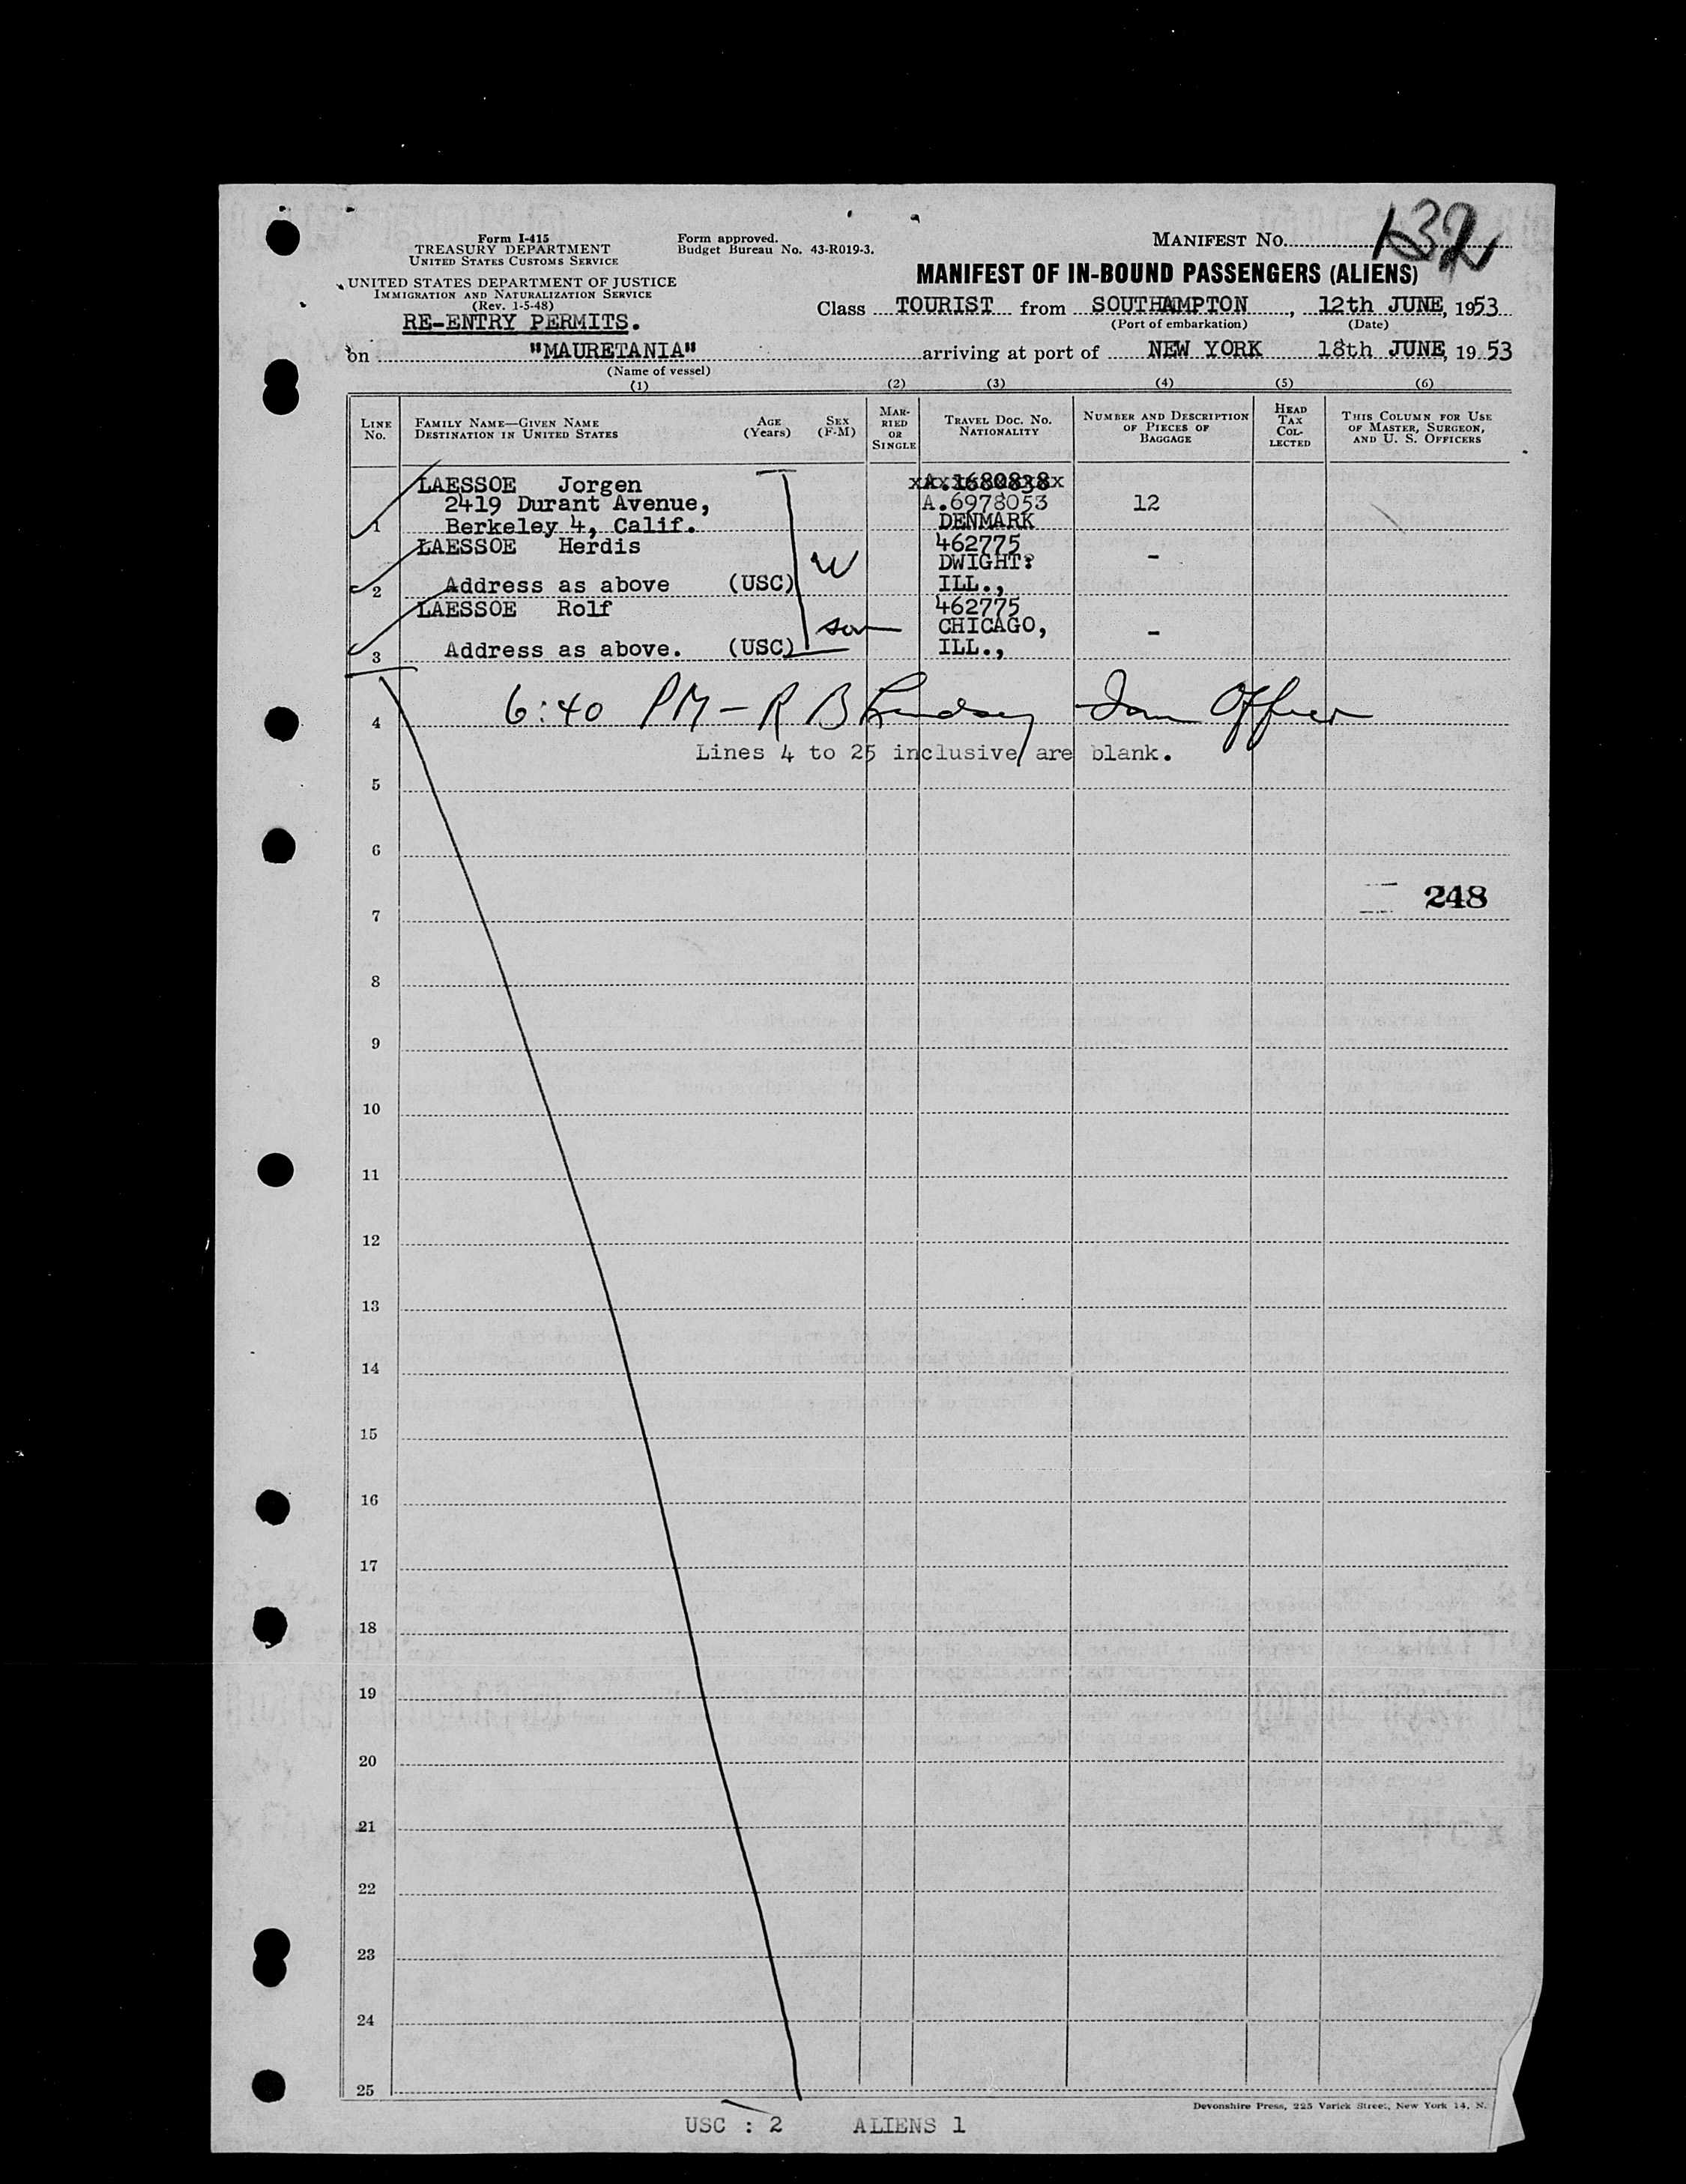 Form I-415
TREASURY DEPARTMENT
UNITED STATES CUSTOMS SERVICE
UNITED STATES DEPARTMENT OF JUSTICE
IMMIGRATION AND NATURALIZATION SERVICE
(Rev. 1-5-48)
RE-ENTRY PERMITS.
Form approved.
Budget Bureau No. 43-R019-3.
MANIFEST No. 132
MANIFEST OF IN-BOUND PASSENGERS (ALIENS)
Class TOURIST from SOUTHAMPTON, 12th JUNE, 1953
(Port of embarkation) (Date)
on "MAURETANIA" arriving at port of NEW YORK 18th JUNE, 19 53
(Name of vessel)
(1) (2) (3) (4) (5) (6)
LINE No. FAMILY NAME—GIVEN NAME DESTINATION IN UNITED STATES AGE (Years) SEX (F-M) MARRIED OR SINGLE TRAVEL DOC. NO. NATIONALITY NUMBER AND DESCRIPTION OF PIECES OF BAGGAGE HEAD TAX COLLECTED THIS COLUMN FOR USE OF MASTER, SURGEON, AND U. S. OFFICERS
LAESSOE Jorgen A.1680838
2419 Durant Avenue, A.6978053 12
1 Berkeley 4, Calif. DENMARK
LAESSOE Herdis 462775
W DWIGHT: -
2 Address as above (USC) ILL.,
LAESSOE Rolf 462775
son CHICAGO, -
3 Address as above. (USC) ILL.,
4 6:40 PM - R B Lindsay Imm Officer
Lines 4 to 25 inclusive are blank.
5
6
248
7
8
9
10
11
12
13
14
15
16
17
18
19
20
21
22
23
24
25
Devonshire Press, 225 Varick Street, New York 14, N.
USC : 2 ALIENS 1